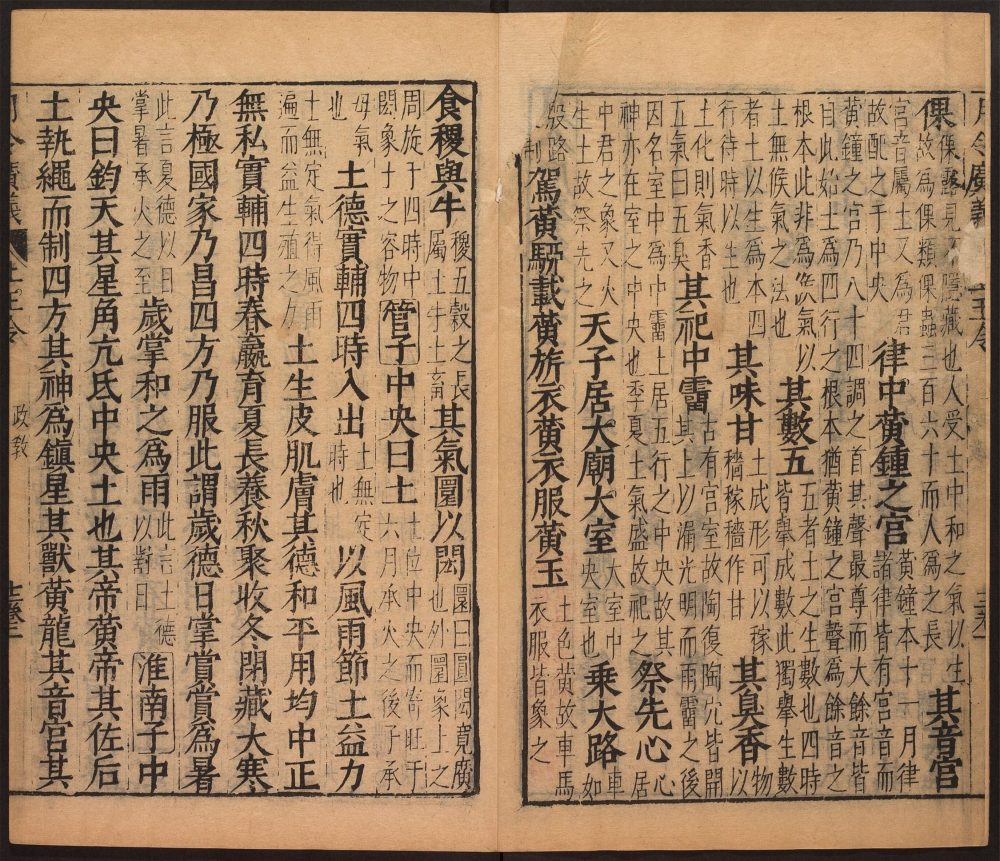 倮倮露見不隱藏也人受土中和之氣以生故為倮類倮蟲三百六十而人為之長其音宮
宮音屬土又為君故配之于中央律中黃鍾之宮黃鐘本十一月律諸律皆有宮音而
黃鐘之宮乃八十四調之首其聲最尊而大餘音皆自此始如土為四行之根本猶黃鐘之宮聲為餘音之
根本此非為候氣以土無候氣之法也其數五五者土之生數也四時皆舉成數此獨舉生數
者土以生為本四行待時以生也其味甘土成形可以稼穡稼穡作甘其臭香物以
土化則氣香五氣曰五臭其祀中霤古有宮室故陶復陶穴皆開其上以漏光明而雨霤之後
因名室中為中霤土居五行之中央故其神亦在室之中央也季夏土氣盛故祀之祭先心心居
中君之象又火生土故祭先之天子居大廟大室大室中央室也乘大路車如
殷路制駕黃騮載黃旂衣黃衣服黃玉土色黃故車馬衣服皆象之
食稷與牛稷五穀之長屬土牛土畜其氣圜以閎圜曰圓閎寬廣也外圜象土之
周旋于四時中閎象土之容物管子中央曰土土位中央而寄旺于六月承火之後子承
母氣也土德實輔四時入出土無定時也以風雨節土益力
土無定氣得風雨遍而益生殖之力土生皮肌膚其德和平用均中正
無私實輔四時春嬴育夏長養秋聚收冬閉藏大寒
乃極國家乃昌四方乃服此謂歲德日掌賞賞為暑
此言夏德以日掌暑承火之至歲掌和和為雨此言土德以對日淮南子中
央曰鈞天其星角亢氐中央土也其帝黃帝其佐后
土執繩而制四方其神為鎮星其獸黃龍其音宮其
政教